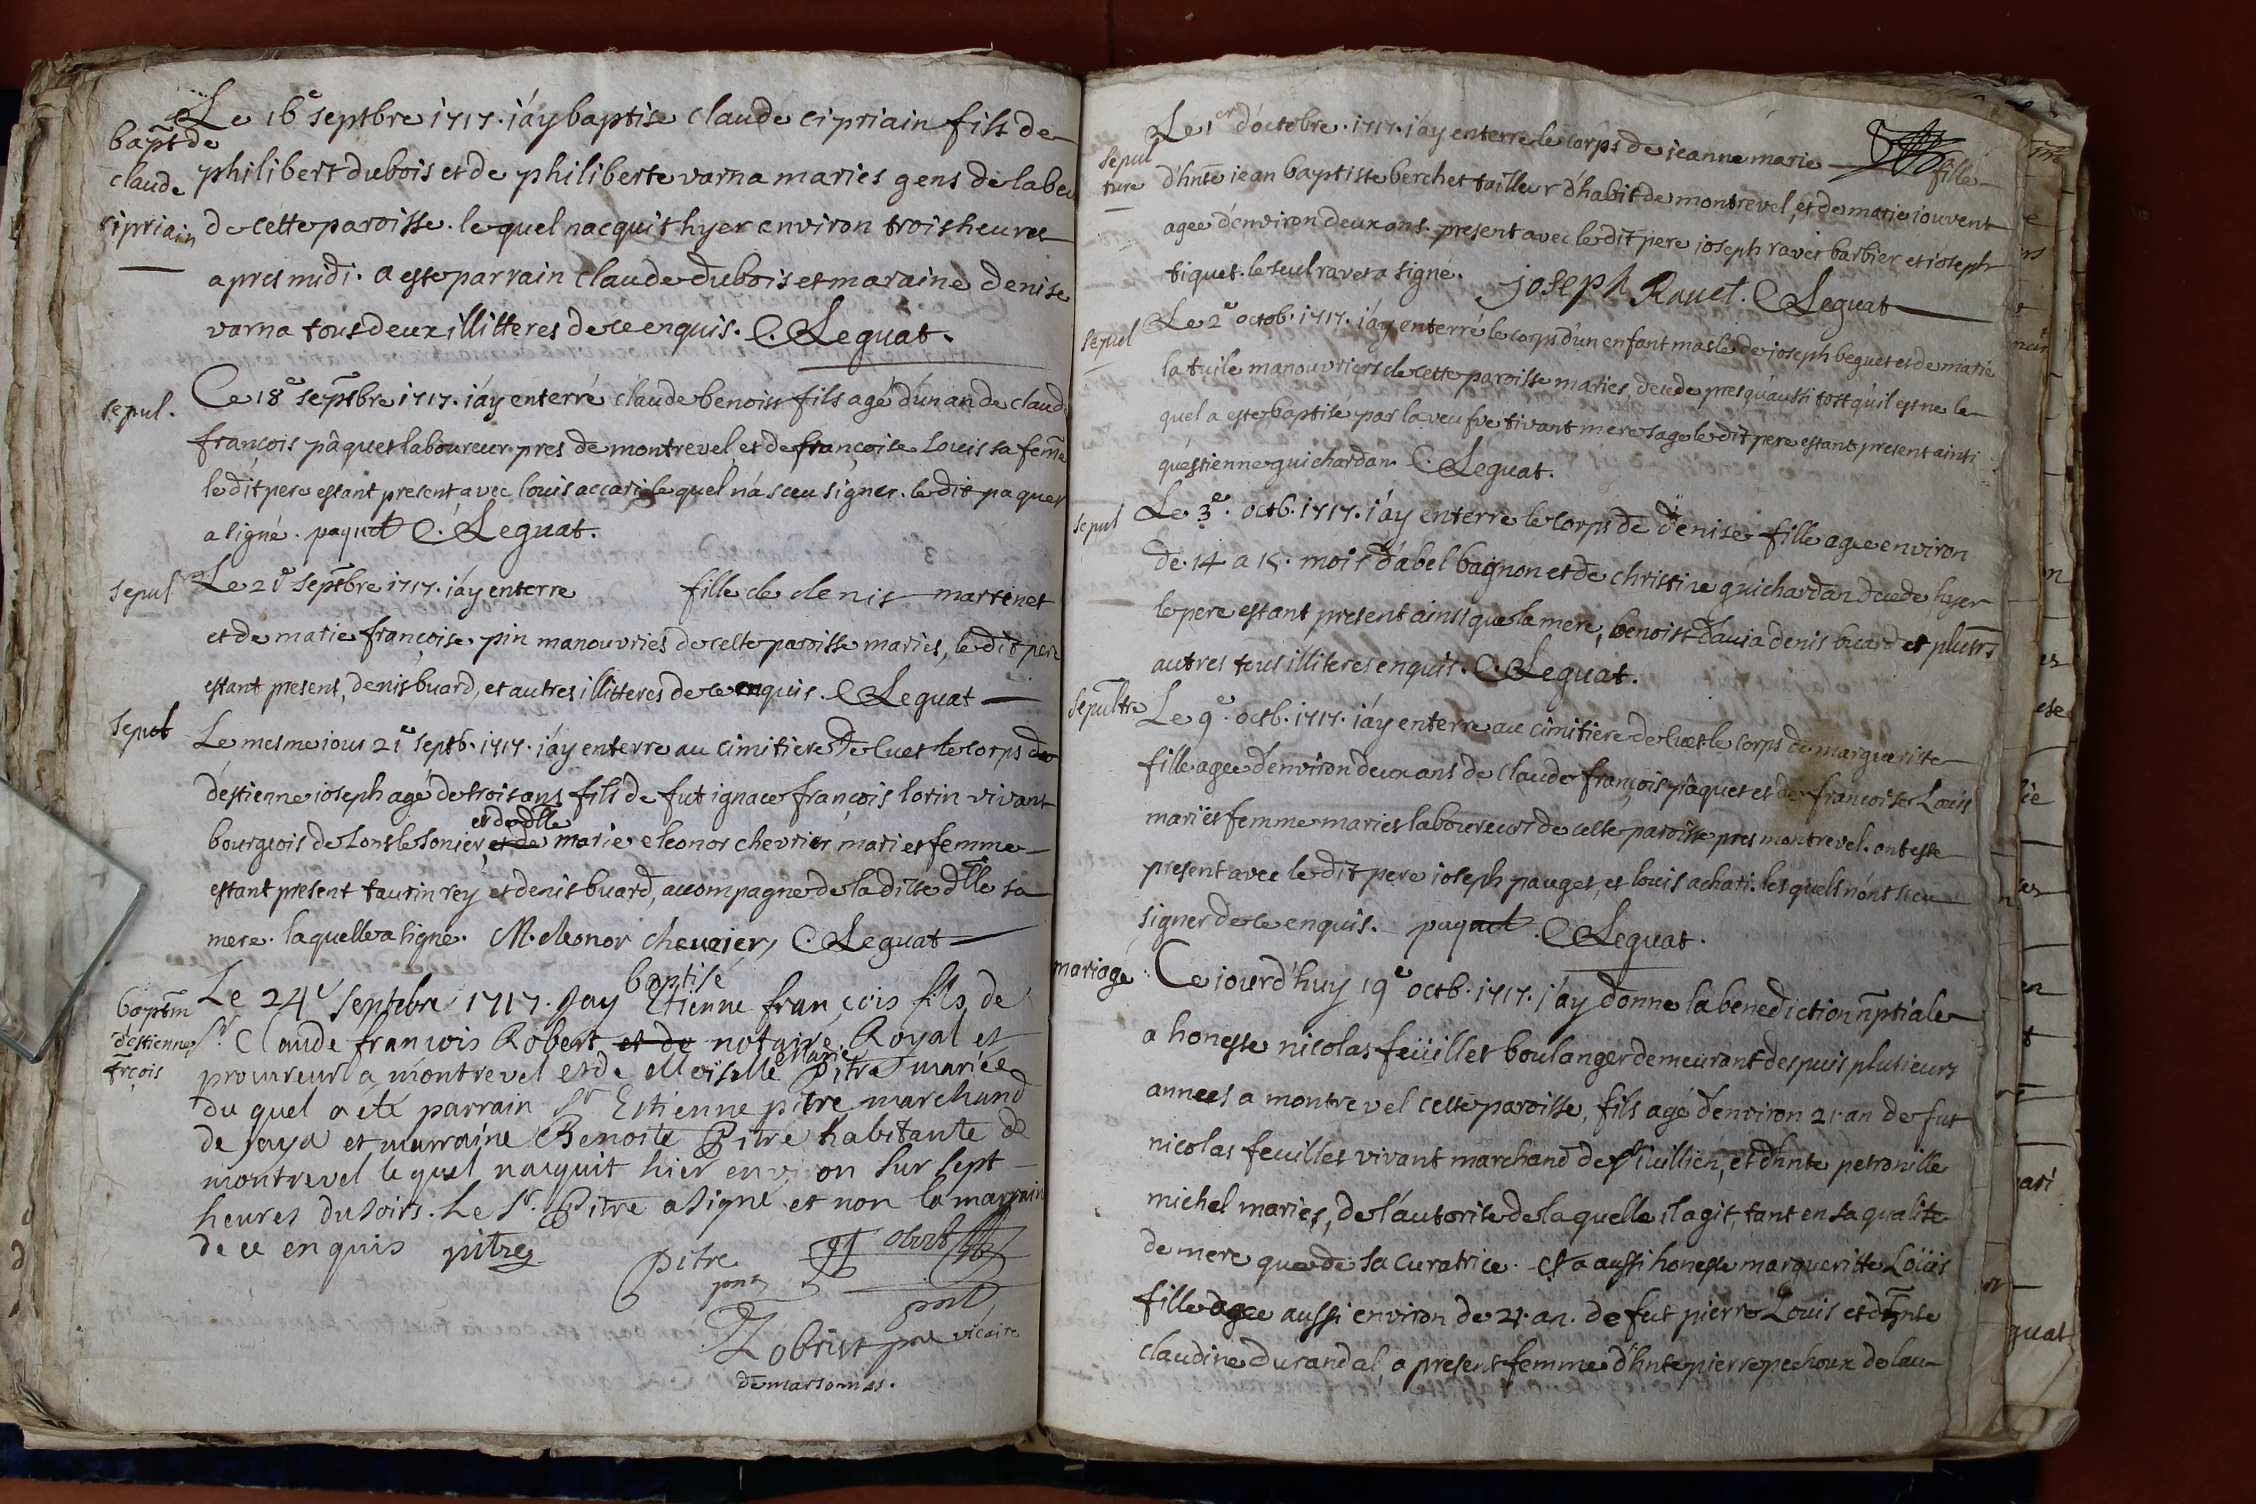 Le 16e septbre 1717. j'ay baptise claude cipriain fils de
bapt de
claude
cipriain
philibert dubois et de philiberte varna maries gens de labeu
de cette paroisse. le quel nacquit hyer environ trois heures
apres midi. a este parrain claude dubois et maraine denise
varna tous deux illitteres de ce enquis. C. Leguat.
sepul.
Ce 18e septbre 1717. j'ay enterré claude benoist fils agé d'un an de claude
françois pâquet laboureur pres de montrevel et de françoise Louis sa feme
le dit pere estant present avec louis accari lequel n'a sceu signer. le dit paquet
a signé. paquet C. Leguat.
sepul
Le 21e septbre 1717. j'ay enterre fille de denis martinet
et de marie françoise pin manouvries de cette paroisse maries, le dit pere
estant present, denis buard, et autres illitteres de ce enquis. C. Leguat
sepul
Le mesme jour 21e septb. 1717. j'ay enterre au cimitiere de Cuet le corps de
d'estienne joseph agé de trois ans fils de fut ignace françois lorin vivant
bourgeois de Lons le sonier, et de et de dlle marie eleonor chevrier mari et femme
estant present taurin rey et denis buard, accompagné de la ditte dlle sa
mere. laquelle a signé. M. eleonor chevrier, C. Leguat
baptm
d'estienne
frçois
Le 24e septebre 1717. Jay baptisé Etienne françois fils de
Sr. Claude francois Robert et de notaire Royal et
procureur a montrevel et de Moiselle Marie Pitre mariée
du quel a eté parrain Sr Estienne pitre marchand
de jaya et marraine Benoite Pitre habitante de
montrevel lequel nacquit hier environ sur sept
heures du soirs. Le Sr. Pitre a signé et non la marrain
de ce enquis pitre
Pitre
Zobrist pre vicaire
de marsonnas.
sepul
ture
Le 1er d'octobre. 1717. j'ay enterre le corps de jeanne marie fille
d'hnte jean baptiste berchet tailleur d'habit de montrevel, et de marie jouvent
agee d'environ deux ans. present avec le dit pere joseph ravet barbier et joseph
tiquet. le seul ravet a signé. joseph Ravet. C. Leguat
sepul
Le 2e octob. 1717. j'ay enterré le corps d'un enfant masle de joseph beguet et de marie
la tuile manouvriers de cette paroisse maries, decede presqu'aussi tost qu'il est ne le
quel a este baptisé par la veufve tivant mere sage le dit pere estant present ainsi
qu'estienne guichardan. C. Leguat.
sepul
Le 3e. octb. 1717. j'ay enterre le corps de denise fille agee environ
de 14 a 15. mois d'abel bagnon et de christine guichardan decede hyer
le pere estant present ainsi que la mere, benoist d'avia denis buard et plusrs
autres tous illiteres enquis. C. Leguat.
sepultre
Le 9e. octb. 1717. j'ay enterre au cimitiere de Cuet le corps de margueritte
fille agee d'environ deux ans de claude françois pâquet et de françoise Louis
mari et femme maries laboureurs de cette paroisse pres montrevel. ont este
present avec le dit pere joseph pauget, et louis achari. les quels n'ont sceu
signer de ce enquis. paquet. C. Leguat.
mariage
Ce jourd'huy 19e octb. 1717. j'ay donne la benediction nptiale
a honeste nicolas feüillet boulanger demeurant despuis plusieurs
annees a montrevel cette paroisse, fils agé d'environ 21 an de fut
nicolas feuillet vivant marchand de st Juillien, et d'hnte petronille
michel maries, de l'autorite de laquelle il agit, tant en sa qualite
de mere que de sa curatrice. et a aussi honeste margueritte Loüis
fille agee aussi environ de 21. an. de fut pierre Louis et d'hnte
claudine durandal, a present femme d'hnte pierre pechoux de lau